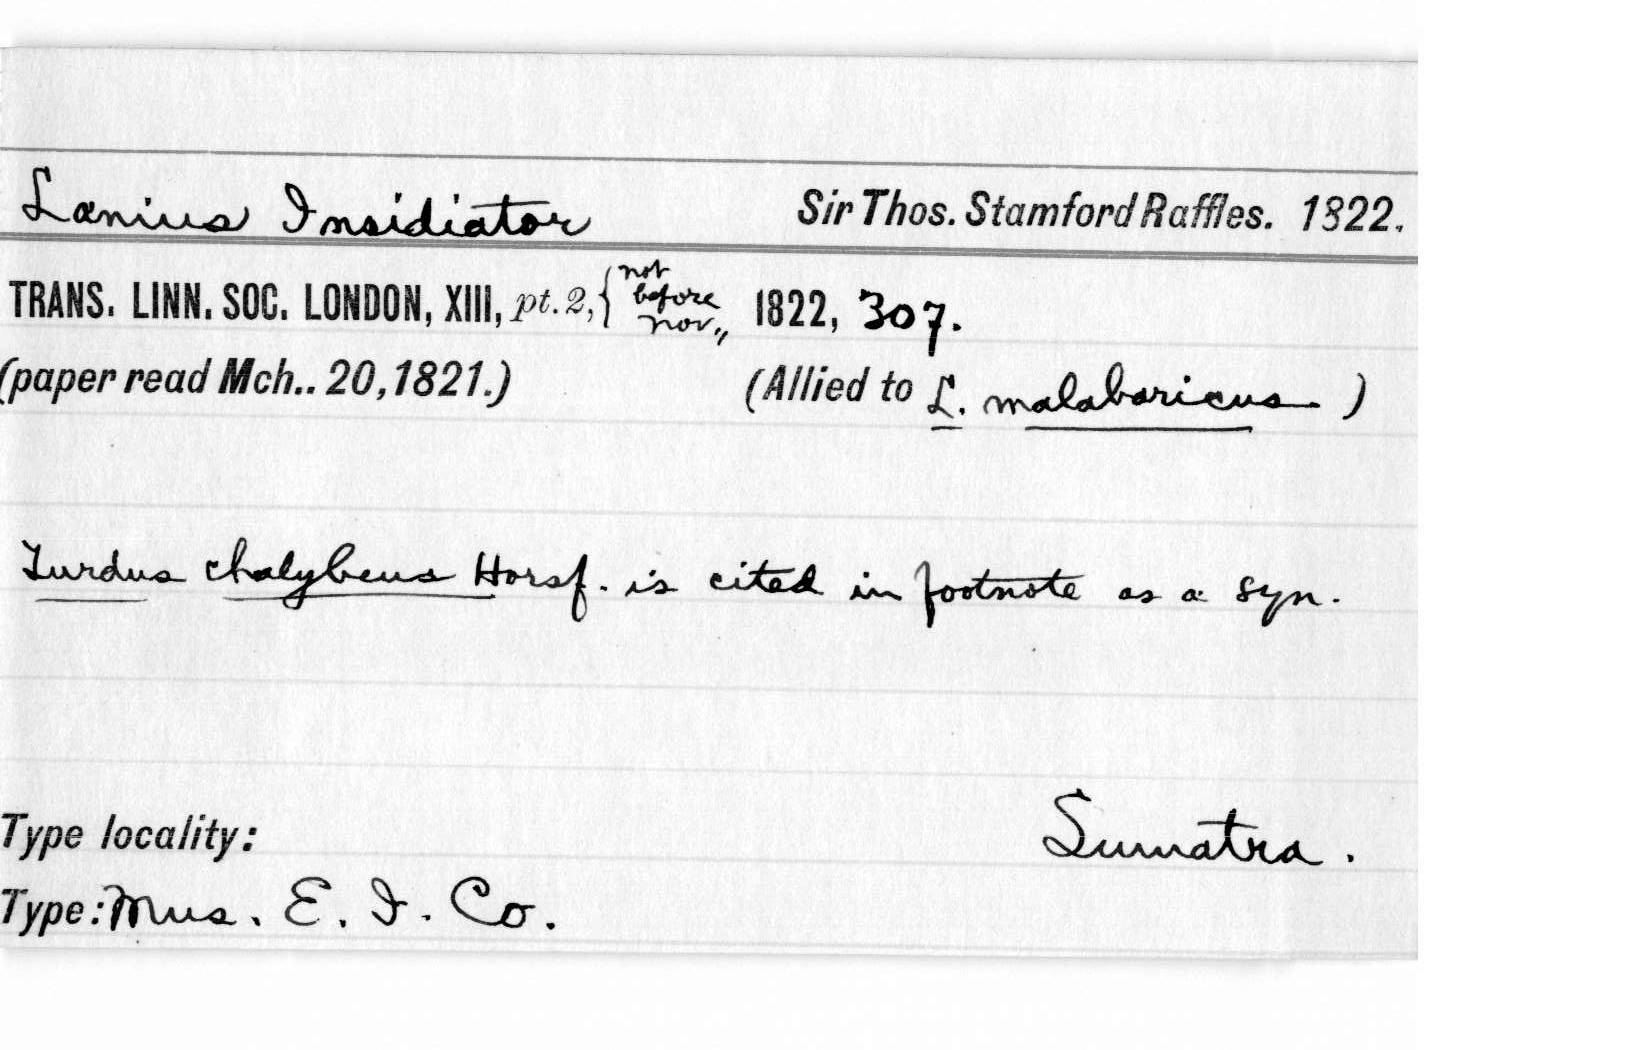 Lanius Insidiator Sir Thos. Stamford Raffles. 1822.
TRANS. LINN. SOC. LONDON, XIII, pt. 2, { not before Nov., 1822, 307.
(paper read Mch.. 20, 1821.) (Allied to L. malabaricus )
Turdus chalybeus Horsf. is cited in footnote as a syn.
Type locality: Sumatra.
Type: Mus. E. I. Co.